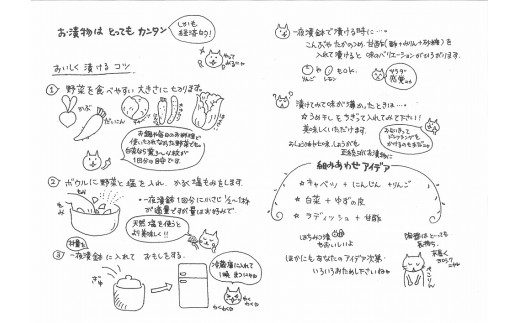 お漬物は とっても カンタン
しかも
経済的!
やって
みるにゃ
おいしく 漬ける コツ
① 野菜を食べやすい 大きさに切ります。
かぶ
だいこん
お鍋や毎日のお料理で
使いきれなかった野菜でも
白菜なら葉3〜4枚が
1回分の目安です
② ボウルに野菜と塩を入れ、かるく塩もみをします。
もみ
もみ
一夜漬鉢1回分に小さじ1/2〜1杯
が適量ですが量はお好みで
天然塩を使うと
より美味しい!!
③ 一夜漬鉢に入れて おもしをする。
ぎゅ
冷蔵庫に入れて
1晩 まつにゃ
わくわく
わく
わく
一夜漬鉢で漬ける時に…。
こんぶや たかのつめ、甘酢(酢+みりん+砂糖)を
入れて漬けると 味のバリエーションがひろがります。
や
もOK.
りんご
レモン
サラダ
感覚
漬けてみて味が薄かったときは…
☆うめ干しをちぎって入れてみて下さい!!
美味しくいただけます。
おしょう油や七味、しょうがも
組みあわせアイデア
☆キャベツ + にんじん + りんご
☆白菜 + ゆずの皮
☆ラディッシュ + 甘酢
はちみつ漬
もおいしいよ
ほかにもあなたのアイデア次第
いろいろおためし下さいねm
陶器はとっても
長持ち、
末長く
ヨロシク
ぺこりん